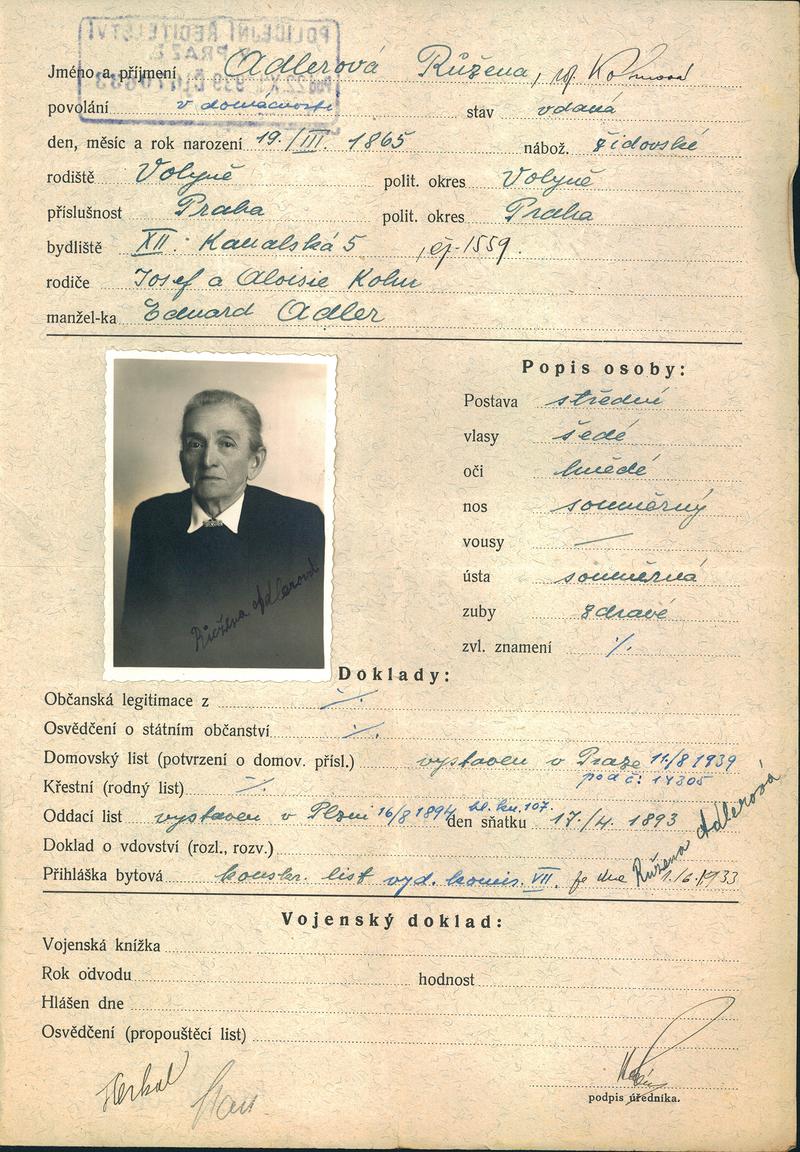 POLICEJNÍ ŘEDITELSTVÍ
V PRAZE
Jméno a příjmení Adlerová Růžena, roz. Kohnová
povolání v domácnosti stav vdaná
den, měsíc a rok narození 19./III. 1865 nábož. židovské
rodiště Volyně polit. okres Volyně
příslušnost Praha polit. okres Praha
bydliště XII. Kanalská 5, čp. 1559.
rodiče Josef a Aloisie Kohn
manžel-ka Eduard Adler
Popis osoby:
Postava střední
vlasy šedé
oči hnědé
nos souměrný
vousy —
ústa souměrná
zuby zdravé
zvl. znamení ./.
Růžena Adlerová
Doklady:
Občanská legitimace z ./.
Osvědčení o státním občanství ./.
Domovský list (potvrzení o domov. přísl.) vystaven v Praze 11/8 1939
pod č: 14305
Křestní (rodný list) ./.
Oddací list vystaven v Plzni 16/8 1894 den sňatku 17./4. 1893
Doklad o vdovství (rozl., rozv.)
Přihláška bytová konskr. list vyd. komis. VII. 1./6. 1933
Růžena Adlerová
Vojenský doklad:
Vojenská knížka
Rok odvodu hodnost
Hlášen dne
Osvědčení (propouštěcí list)
podpis úředníka.